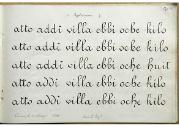 atto addi villa ebbi oche kilo
atto addi villa ebbi oche kilo
atto addi villa ebbi oche huit
atto addi villa ebbi oche kilo
atto addi villa ebbi oche kilo